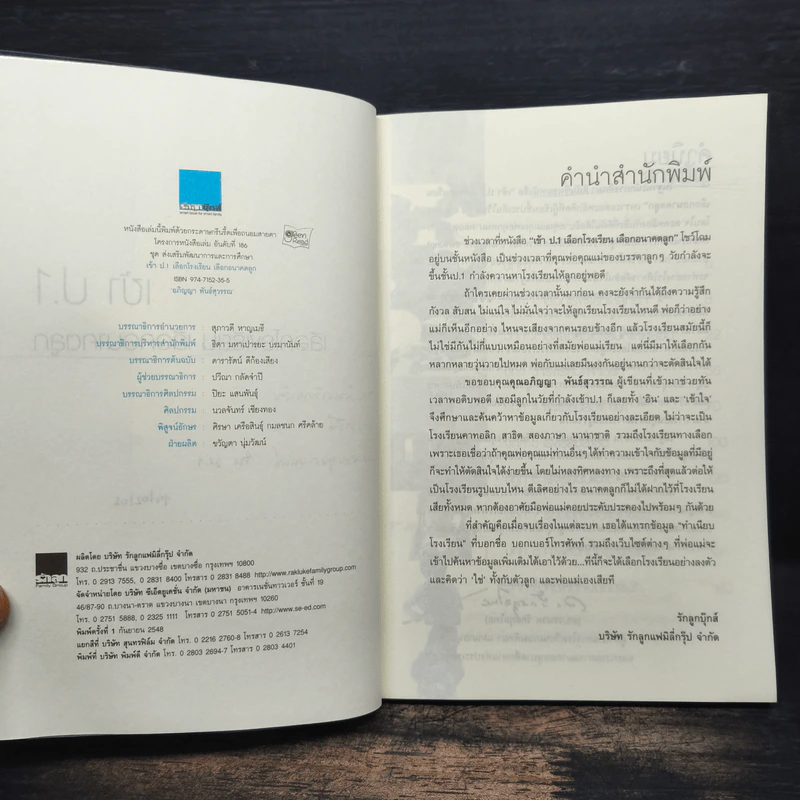 รักลูกบุ๊กส์
หนังสือเล่มนี้พิมพ์ด้วยกระดาษกรีนรี้ดเพื่อถนอมสายตา
Green Read
โครงการหนังสือเล่ม อันดับที่ 186
ชุด ส่งเสริมพัฒนาการและการศึกษา
เข้า ป.1 เลือกโรงเรียน เลือกอนาคตลูก
ISBN 974-7152-35-5
อภิญญา พันธ์สุวรรณ
บรรณาธิการอำนวยการ สุภาวดี หาญเมธี
บรรณาธิการบริหารสำนักพิมพ์ ธิดา มหาเปารยะ บรมานันท์
บรรณาธิการต้นฉบับ ดารารัตน์ ดีก้องเสียง
ผู้ช่วยบรรณาธิการ ปวีณา กลัดจำปี
บรรณาธิการศิลปกรรม ปิยะ แสนพันธุ์
ศิลปกรรม นวลจันทร์ เชียงทอง
พิสูจน์อักษร ศิรษา เครือสินธุ์ กมลชนก ศรีคล้าย
ฝ่ายผลิต ขวัญตา นุ่มวัฒน์
รักลูก
Family Group
ผลิตโดย บริษัท รักลูกแฟมิลี่กรุ๊ป จำกัด
932 ถ.ประชาชื่น แขวงบางซื่อ เขตบางซื่อ กรุงเทพฯ 10800
โทร. 0 2913 7555, 0 2831 8400 โทรสาร 0 2831 8488 http://www.raklukefamilygroup.com
จัดจำหน่ายโดย บริษัท ซีเอ็ดยูเคชั่น จำกัด (มหาชน) อาคารเนชั่นทาวเวอร์ ชั้นที่ 19
46/87-90 ถ.บางนา-ตราด แขวงบางนา เขตบางนา กรุงเทพฯ 10260
โทร. 0 2751 5888, 0 2325 1111 โทรสาร 0 2751 5051-4 http://www.se-ed.com
พิมพ์ครั้งที่ 1 กันยายน 2548
แยกสีที่ บริษัท สุนทรฟิล์ม จำกัด โทร. 0 2216 2760-8 โทรสาร 0 2613 7254
พิมพ์ที่ บริษัท พิมพ์ดี จำกัด โทร. 0 2803 2694-7 โทรสาร 0 2803 4401
คำนำสำนักพิมพ์
ช่วงเวลาที่หนังสือ "เข้า ป.1 เลือกโรงเรียน เลือกอนาคตลูก" โชว์โฉม
อยู่บนชั้นหนังสือ เป็นช่วงเวลาที่คุณพ่อคุณแม่ของบรรดาลูกๆ วัยกำลังจะ
ขึ้นชั้นป.1 กำลังควานหาโรงเรียนให้ลูกอยู่พอดี
ถ้าใครเคยผ่านช่วงเวลานั้นมาก่อน คงจะยังจำกันได้ถึงความรู้สึก
กังวล สับสน ไม่แน่ใจ ไม่มั่นใจว่าจะให้ลูกเรียนโรงเรียนไหนดี พ่อก็ว่าอย่าง
แม่ก็เห็นอีกอย่าง ไหนจะเสียงจากคนรอบข้างอีก แล้วโรงเรียนสมัยนี้ก็
ไม่ใช่มีกันไม่กี่แบบเหมือนอย่างที่สมัยพ่อแม่เรียน แต่นี่มีมาให้เลือกกัน
หลากหลายวุ่นวายไปหมด พ่อกับแม่เลยมึนงงกันอยู่นานกว่าจะตัดสินใจได้
ขอขอบคุณคุณอภิญญา พันธ์สุวรรณ ผู้เขียนที่เข้ามาช่วยทัน
เวลาพอดิบพอดี เธอมีลูกในวัยที่กำลังเข้าป.1 ก็เลยทั้ง 'อิน' และ 'เข้าใจ'
จึงศึกษาและค้นคว้าหาข้อมูลเกี่ยวกับโรงเรียนอย่างละเอียด ไม่ว่าจะเป็น
โรงเรียนคาทอลิก สาธิต สองภาษา นานาชาติ รวมถึงโรงเรียนทางเลือก
เพราะเธอเชื่อว่าถ้าคุณพ่อคุณแม่ท่านอื่นๆ ได้ทำความเข้าใจกับข้อมูลที่มีอยู่
ก็จะทำให้ตัดสินใจได้ง่ายขึ้น โดยไม่หลงทิศหลงทาง เพราะถึงที่สุดแล้วต่อให้
เป็นโรงเรียนรูปแบบไหน ดีเลิศอย่างไร อนาคตลูกก็ไม่ได้ฝากไว้ที่โรงเรียน
เสียทั้งหมด หากต้องอาศัยมือพ่อแม่คอยประคับประคองไปพร้อมๆ กันด้วย
ที่สำคัญคือเมื่อจบเรื่องในแต่ละบท เธอได้แทรกข้อมูล "ทำเนียบ
โรงเรียน" ที่บอกชื่อ บอกเบอร์โทรศัพท์ รวมถึงเว็บไซต์ต่างๆ ที่พ่อแม่จะ
เข้าไปค้นหาข้อมูลเพิ่มเติมได้เอาไว้ด้วย...ทีนี้ก็จะได้เลือกโรงเรียนอย่างลงตัว
และคิดว่า 'ใช่' ทั้งกับตัวลูก และพ่อแม่เองเสียที
รักลูกบุ๊กส์
บริษัท รักลูกแฟมิลี่กรุ๊ป จำกัด